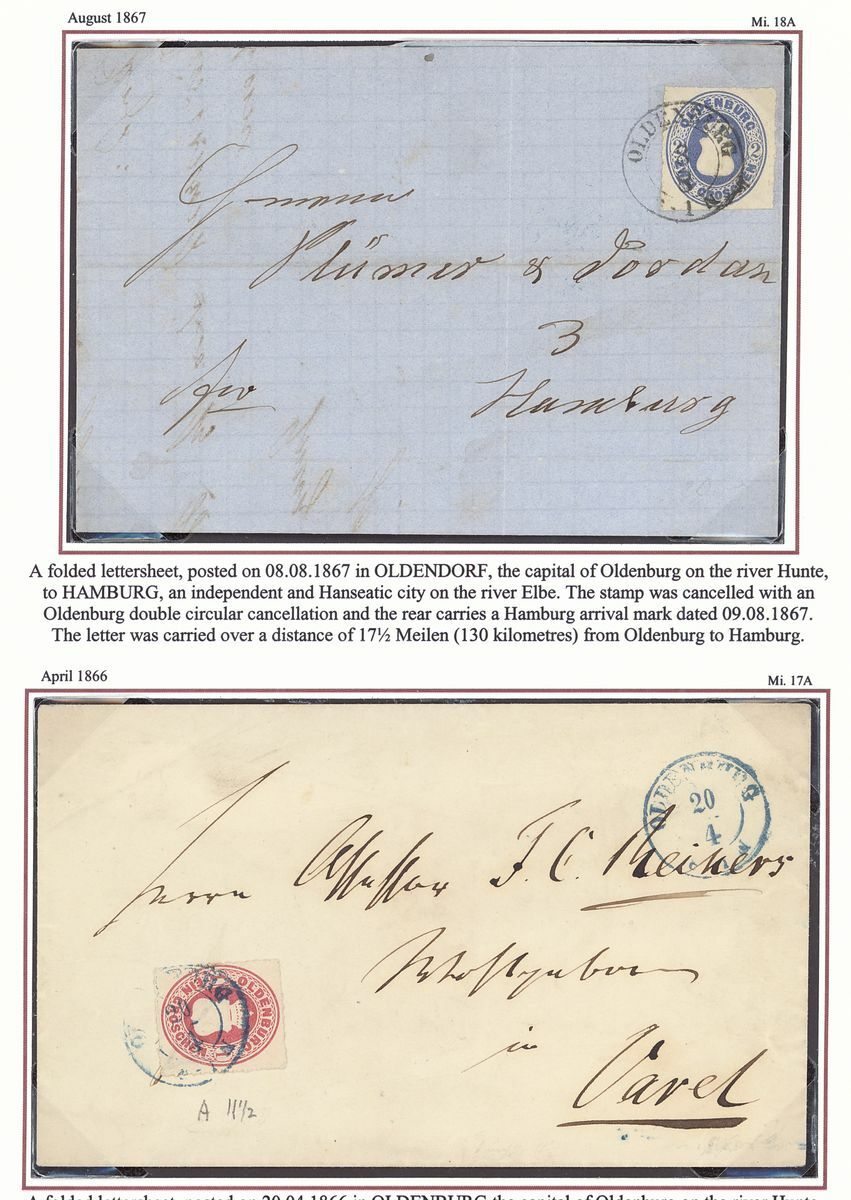 August 1867
Mi. 18A
OLDENBURG
OLDENBURG
2
GROSCHEN
Plümer & Jordan
3
Hamburg
A folded lettersheet, posted on 08.08.1867 in OLDENDORF, the capital of Oldenburg on the river Hunte,
to HAMBURG, an independent and Hanseatic city on the river Elbe. The stamp was cancelled with an
Oldenburg double circular cancellation and the rear carries a Hamburg arrival mark dated 09.08.1867.
The letter was carried over a distance of 17½ Meilen (130 kilometres) from Oldenburg to Hamburg.
April 1866
Mi. 17A
OLDENBURG
20
4
Herrn Assessor F. C. Reiners
Wohlgeboren
in
Varel
OLDENBURG
1
GROSCHEN
A 11½
A folded lettersheet, posted on 20.04.1866 in OLDENBURG the capital of Oldenburg on the river Hunte